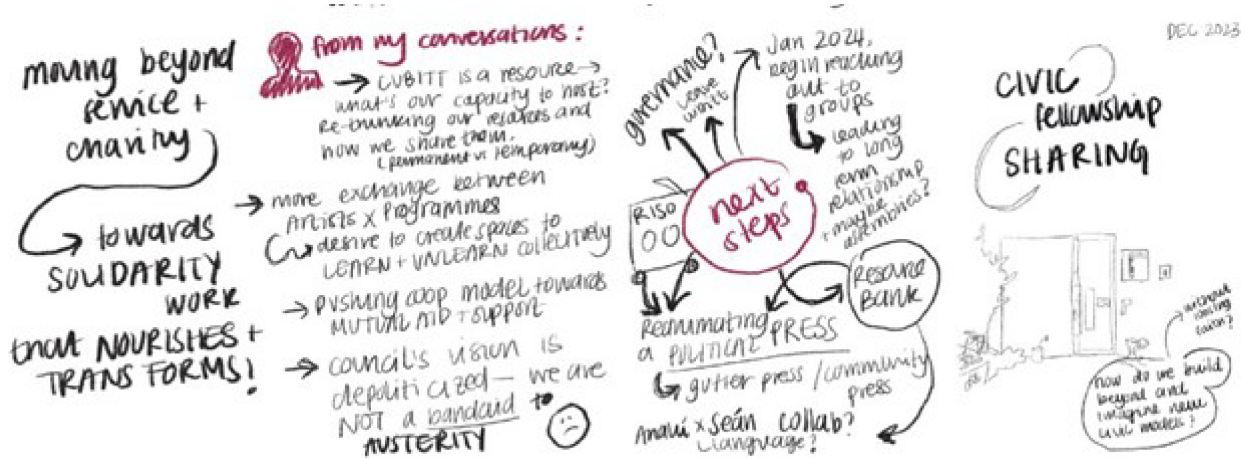 moving beyond
service +
charity
towards
SOLIDARITY
WORK
that NOURISHES +
TRANSFORMS!
from my conversations:
→ CUBITT IS a resource →
what's our capacity to host?
Re-thinking our resources and
how we share them.
(permanent vs temporary)
→ more exchange between
Artists x Programmes
desire to create spaces to
LEARN + UNLEARN collectively
→ pushing coop model towards
MUTUAL AID + support
→ council's vision is
depoliticized — we are
NOT a bandaid to
AUSTERITY
governance?
Leave
won't
Jan 2024,
begin reaching
out to
groups
leading
to long
term
relationship
+ maybe
assemblies?
next
steps
RISO
Resource
BANK
Reanimating
a POLITICAL PRESS
gutter press / community
press
Anahí x Seán collab?
language?
DEC 2023
CIVIC
fellowship
SHARING
without
losing
how do we build
beyond and
imagine new
civil models?